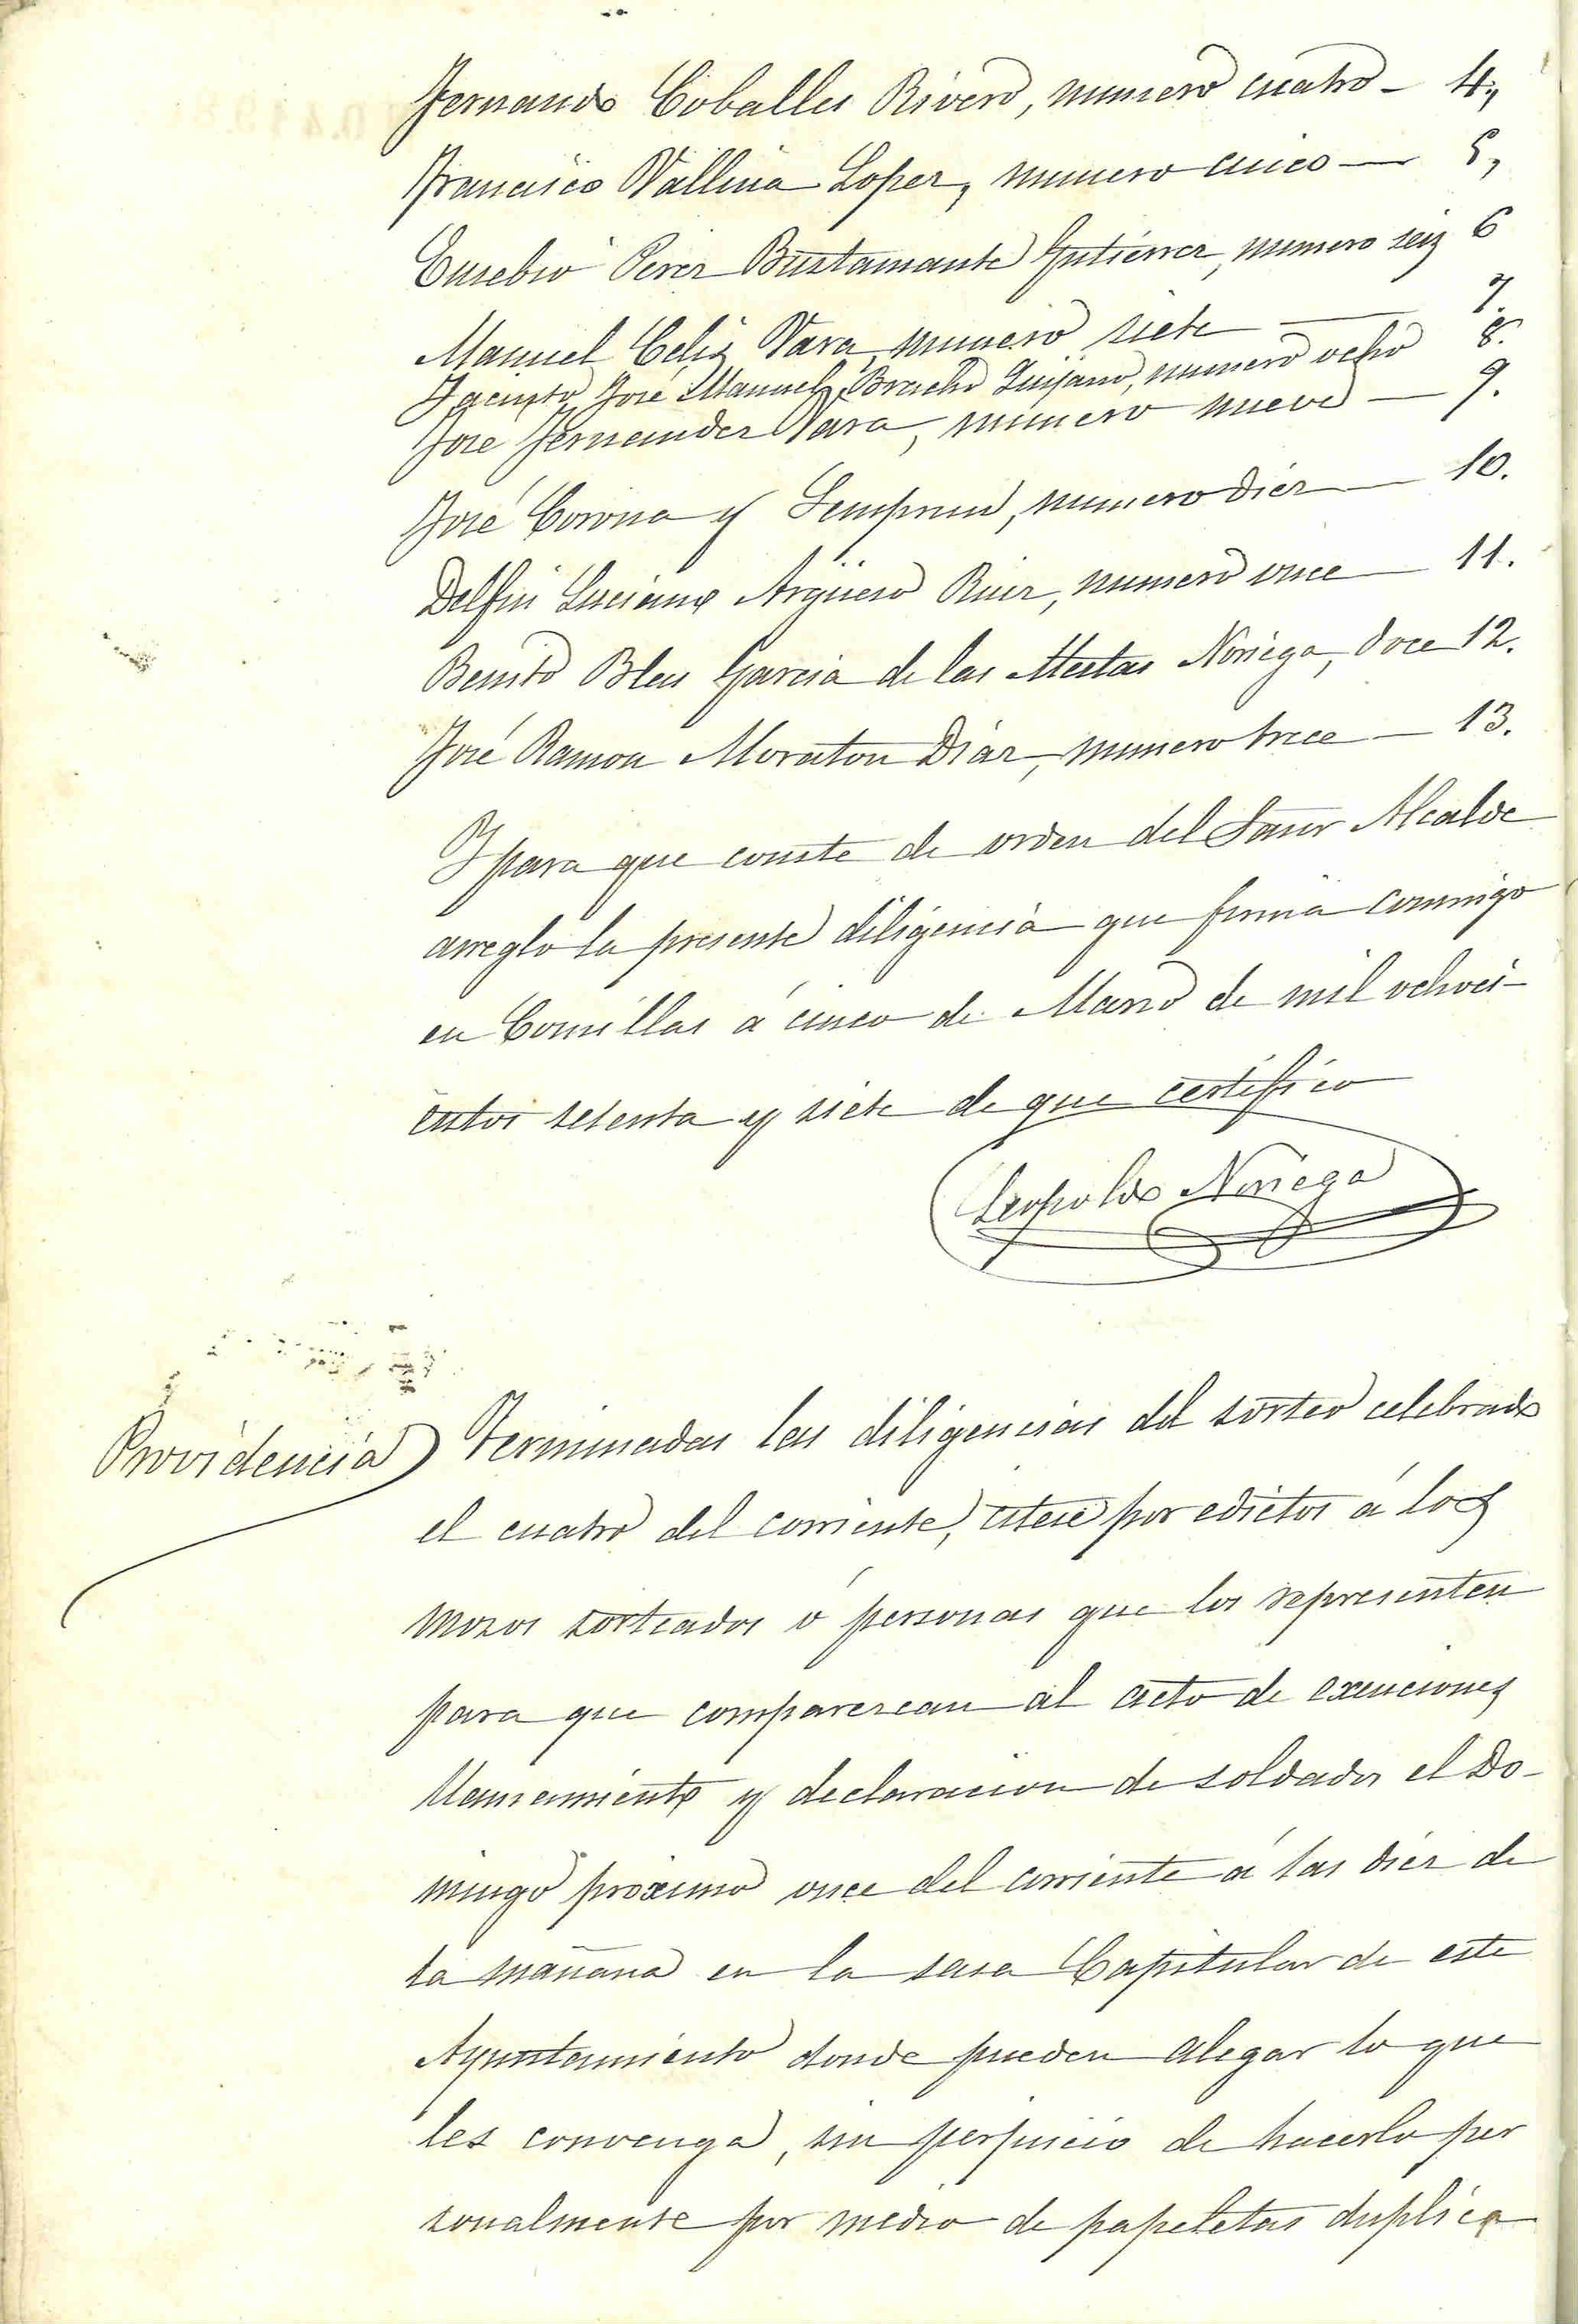 Fernando Coballes Rivero, numero cuatro — 4.,
Francisco Vallina Lopez, numero cinco — 5,
Eusebio Perez Bustamante Gutierrez, numero seis 6
Manuel Celis Vara, numero siete — 7.
Jacinto José Manuel Bracho Quijano, numero ocho 8.
José Fernandez Vara, numero nueve — 9.
José Corona y Semprun, numero diez — 10.
Delfin Luciano Argüeso Ruiz, numero once — 11.
Benito Blas Garcia de las Mestas Noriega, doce 12.
José Ramon Moraton Diaz, numero trece — 13.
Y para que conste de orden del Señor Alcalde
arreglo la presente diligencia que firma conmigo
en Comillas á cinco de Marzo de mil ochoci-
entos setenta y siete de que certifico
Leopoldo Noriega
Providencia) Terminadas las diligencias del sorteo celebrado
el cuatro del corriente, citese por edictos á los
mozos sorteados ó personas que los representen
para que comparezcan al acto de exenciones
llamamiento y declaracion de soldados el Do-
mingo proximo once del corriente á las diez de
la mañana en la sala Capitular de este
Ayuntamiento donde pueden alegar lo que
les convenga, sin perjuicio de hacerlo per
sonalmente por medio de papeletas duplica